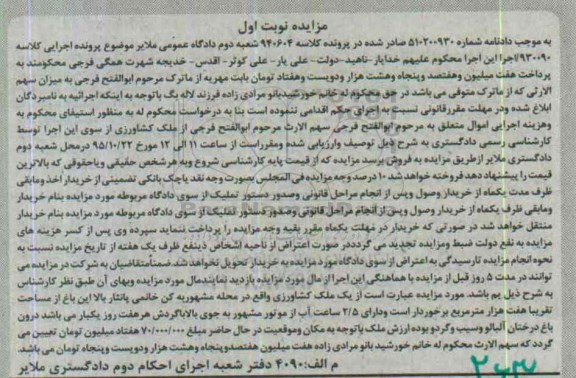 مزایده نوبت اول
به موجب دادنامه شماره ۵۱۰۲۰۰۹۳۰ صادر شده در پرونده کلاسه ۹۴۰۶۰۴ شعبه دوم دادگاه عمومی ملایر موضوع پرونده اجرایی کلاسه
۹۳۰۰۹۰/اجرا این اجرا محکوم علیهم خدایار -ناهید-دولت- علی یار- علی کوثر- اقدس- خدیجه شهرت همگی فرجی محکومند به
پرداخت هفت میلیون وهفتصد وپنجاه وهشت هزار ودویست وهفتاد تومان بابت مهریه از ماترک مرحوم ابوالفتح فرجی به میزان سهم
الارثی که از ماترک متوفی می باشد در حق محکوم له خانم خورشیدبانو مرادی زاده فرزند لاله بگ باتوجه به اینکه اجرائیه به نامبردگان
ابلاغ شده ودر مهلت مقررقانونی نسبت به اجرای حکم اقدامی ننموده است بنا به درخواست محکوم له به منظور استیفای محکوم به
وهزینه اجرایی اموال متعلق به مرحوم ابوالفتح فرجی سهم الارث مرحوم ابوالفتح فرجی از ملک کشاورزی از سوی این اجرا توسط
کارشناسی رسمی دادگستری به شرح ذیل توصیف وارزیابی شده ومقرراست از ساعت ۱۱ الی ۱۲ مورخ ۹۵/۱۰/۲۲ درمحل شعبه دوم
دادگستری ملایر ازطریق مزایده به فروش برسد مزایده که از قیمت پایه کارشناسی شروع وبه هرشخص حقیقی ویاحقوقی که بالاترین
قیمت را پیشنهاد دهد فروخته خواهد شد ۱۰ درصد وجه مزایده فی المجلس بصورت وجه نقد یاچک بانکی تضمینی از خریدار اخذ ومابقی
ظرف مدت یکماه از خریدار وصول وپس از انجام مراحل قانونی وصدور دستور تملیک از سوی دادگاه مربوطه مورد مزایده بنام خریدار
ومابقی ظرف یکماه از خریدار وصول وپس از انجام مراحل قانونی وصدور دستور تملیک از سوی دادگاه مربوطه مورد مزایده بنام خریدار
منتقل خواهد شد در صورتی که خریدار در مهلت یکماه مقرر بقیه وجه مزایده را پرداخت ننماید سپرده وی پس از کسر هزینه های
مزایده به نفع دولت ضبط ومزایده تجدید می گردددر صورت اعتراض از ناحیه اشخاص ذینفع ظرف یک هفته از تاریخ مزایده نسبت به
نحوه انجام مزایده تارسیدگی به اعتراض از سوی دادگاه مورد مزایده به خریدار تحویل نخواهد شد ضمنامتقاضیان به شرکت در مزایده می
توانند در مدت ۵ روز قبل از مزایده با هماهنگی این اجرا از مال مورد مزایده بازدید نمایندمال مورد مزایده وبهای آن طبق نظر کارشناس
به شرح ذیل یم باشد. مورد مزایده عبارت است از یک ملک کشاورزی واقع در محله مشهوربه کن خانمی پانثار بالا این باغ از مساحت
تقریبا هفت هزار مترمربع برخوردار است ودارای ۲/۵ ساعت آب از موتور مشهور به جوی بالاباگردش هرهفت روز یکبار می باشد درون
باغ درختان آلبالو وسیب وگردو بوده ارزش ملک باتوجه به مکان وموقعیت در حال حاضر مبلغ ۷۰/۰۰۰/۰۰۰ هفتاد میلیون تومان تعیین می
گردد که سهم الارث محکوم له خانم خورشید بانو مرادی زاده هفت میلیون هفتصدوپنجاه وهشت هزار ودویست وپنجاه تومان می باشد.
م الف:۴۰۹۰ دفتر شعبه اجرای احکام دوم دادگستری ملایر